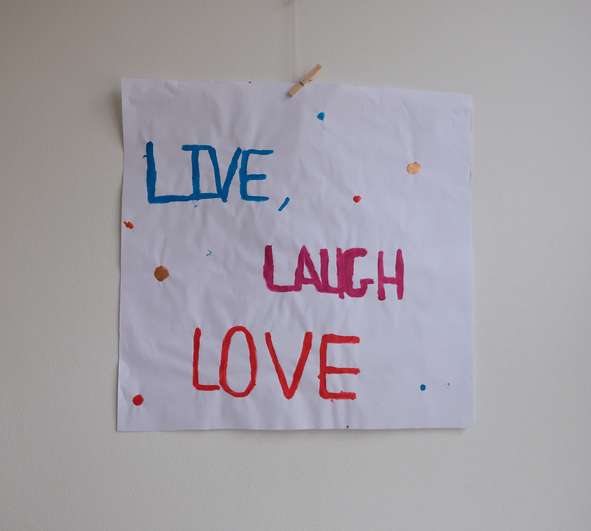 LIVE,
LAUGH
LOVE